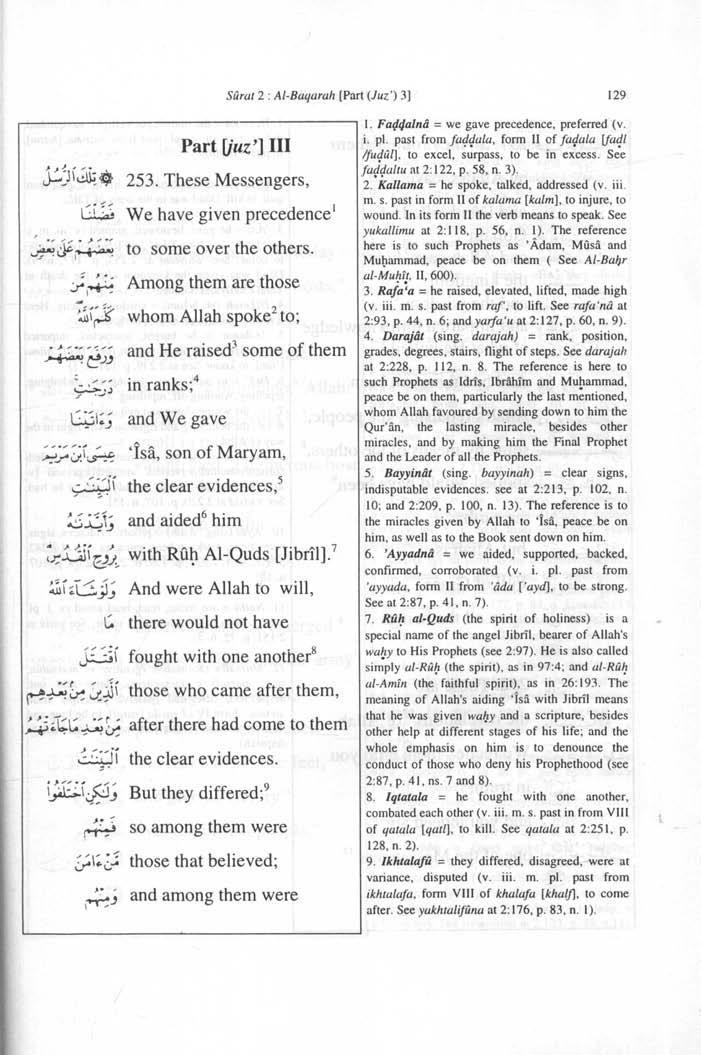 Sûrat 2 : Al-Baqarah [Part (Juz') 3] 129
Part [juz'] III
۞ تِلْكَ ٱلرُّسُلُ 253. These Messengers,
فَضَّلْنَا We have given precedence¹
بَعْضَهُمْ عَلَىٰ بَعْضٍ to some over the others.
مِّنْهُم مَّن Among them are those
كَلَّمَ ٱللَّهُ whom Allah spoke² to;
وَرَفَعَ بَعْضَهُمْ and He raised³ some of them
دَرَجَٰتٍ in ranks;⁴
وَءَاتَيْنَا and We gave
عِيسَى ٱبْنَ مَرْيَمَ ‘Îsâ, son of Maryam,
ٱلْبَيِّنَٰتِ the clear evidences,⁵
وَأَيَّدْنَٰهُ and aided⁶ him
بِرُوحِ ٱلْقُدُسِ with Rûḥ Al-Quds [Jibrîl].⁷
وَلَوْ شَآءَ ٱللَّهُ And were Allah to will,
مَا there would not have
ٱقْتَتَلَ fought with one another⁸
ٱلَّذِينَ مِنۢ بَعْدِهِم those who came after them,
مِّنۢ بَعْدِ مَا جَآءَتْهُمُ after there had come to them
ٱلْبَيِّنَٰتُ the clear evidences.
وَلَٰكِنِ ٱخْتَلَفُوا۟ But they differed;⁹
فَمِنْهُم so among them were
مَّنْ ءَامَنَ those that believed;
وَمِنْهُم and among them were
1. Faḍḍalnâ = we gave precedence, preferred (v.
i. pl. past from faḍḍala, form II of faḍala [faḍl
/fuḍûl], to excel, surpass, to be in excess. See
faḍḍaltu at 2:122, p. 58, n. 3).
2. Kallama = he spoke, talked, addressed (v. iii.
m. s. past in form II of kalama [kalm], to injure, to
wound. In its form II the verb means to speak. See
yukallimu at 2:118, p. 56, n. 1). The reference
here is to such Prophets as 'Âdam, Mûsâ and
Muḥammad, peace be on them ( See Al-Baḥr
al-Muḥîṭ, II, 600).
3. Rafa‘a = he raised, elevated, lifted, made high
(v. iii. m. s. past from raf‘, to lift. See rafa‘nâ at
2:93, p. 44, n. 6; and yarfa‘u at 2:127, p. 60, n. 9).
4. Darajât (sing. darajah) = rank, position,
grades, degrees, stairs, flight of steps. See darajah
at 2:228, p. 112, n. 8. The reference is here to
such Prophets as Idrîs, Ibrâhîm and Muḥammad,
peace be on them, particularly the last mentioned,
whom Allah favoured by sending down to him the
Qur'ân, the lasting miracle, besides other
miracles, and by making him the Final Prophet
and the Leader of all the Prophets.
5. Bayyinât (sing. bayyinah) = clear signs,
indisputable evidences. see at 2:213, p. 102, n.
10; and 2:209, p. 100, n. 13). The reference is to
the miracles given by Allah to ‘Îsâ, peace be on
him, as well as to the Book sent down on him.
6. 'Ayyadnâ = we aided, supported, backed,
confirmed, corroborated (v. i. pl. past from
'ayyada, form II from 'âda ['ayd], to be strong.
See at 2:87, p. 41, n. 7).
7. Rûḥ al-Quds (the spirit of holiness) is a
special name of the angel Jibrîl, bearer of Allah's
waḥy to His Prophets (see 2:97). He is also called
simply al-Rûḥ (the spirit), as in 97:4; and al-Rûḥ
al-Amîn (the faithful spirit), as in 26:193. The
meaning of Allah's aiding ‘Îsâ with Jibrîl means
that he was given waḥy and a scripture, besides
other help at different stages of his life; and the
whole emphasis on him is to denounce the
conduct of those who deny his Prophethood (see
2:87, p. 41, ns. 7 and 8).
8. Iqtatala = he fought with one another,
combated each other (v. iii. m. s. past in from VIII
of qatala [qatl], to kill. See qatala at 2:251, p.
128, n. 2).
9. Ikhtalafû = they differed, disagreed, were at
variance, disputed (v. iii. m. pl. past from
ikhtalafa, form VIII of khalafa [khalf], to come
after. See yakhtalifûna at 2:176, p. 83, n. 1).